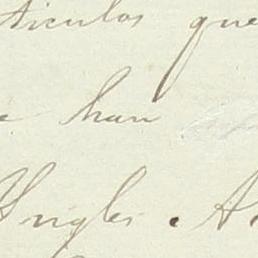 ticulos que
e han
Yngles. A